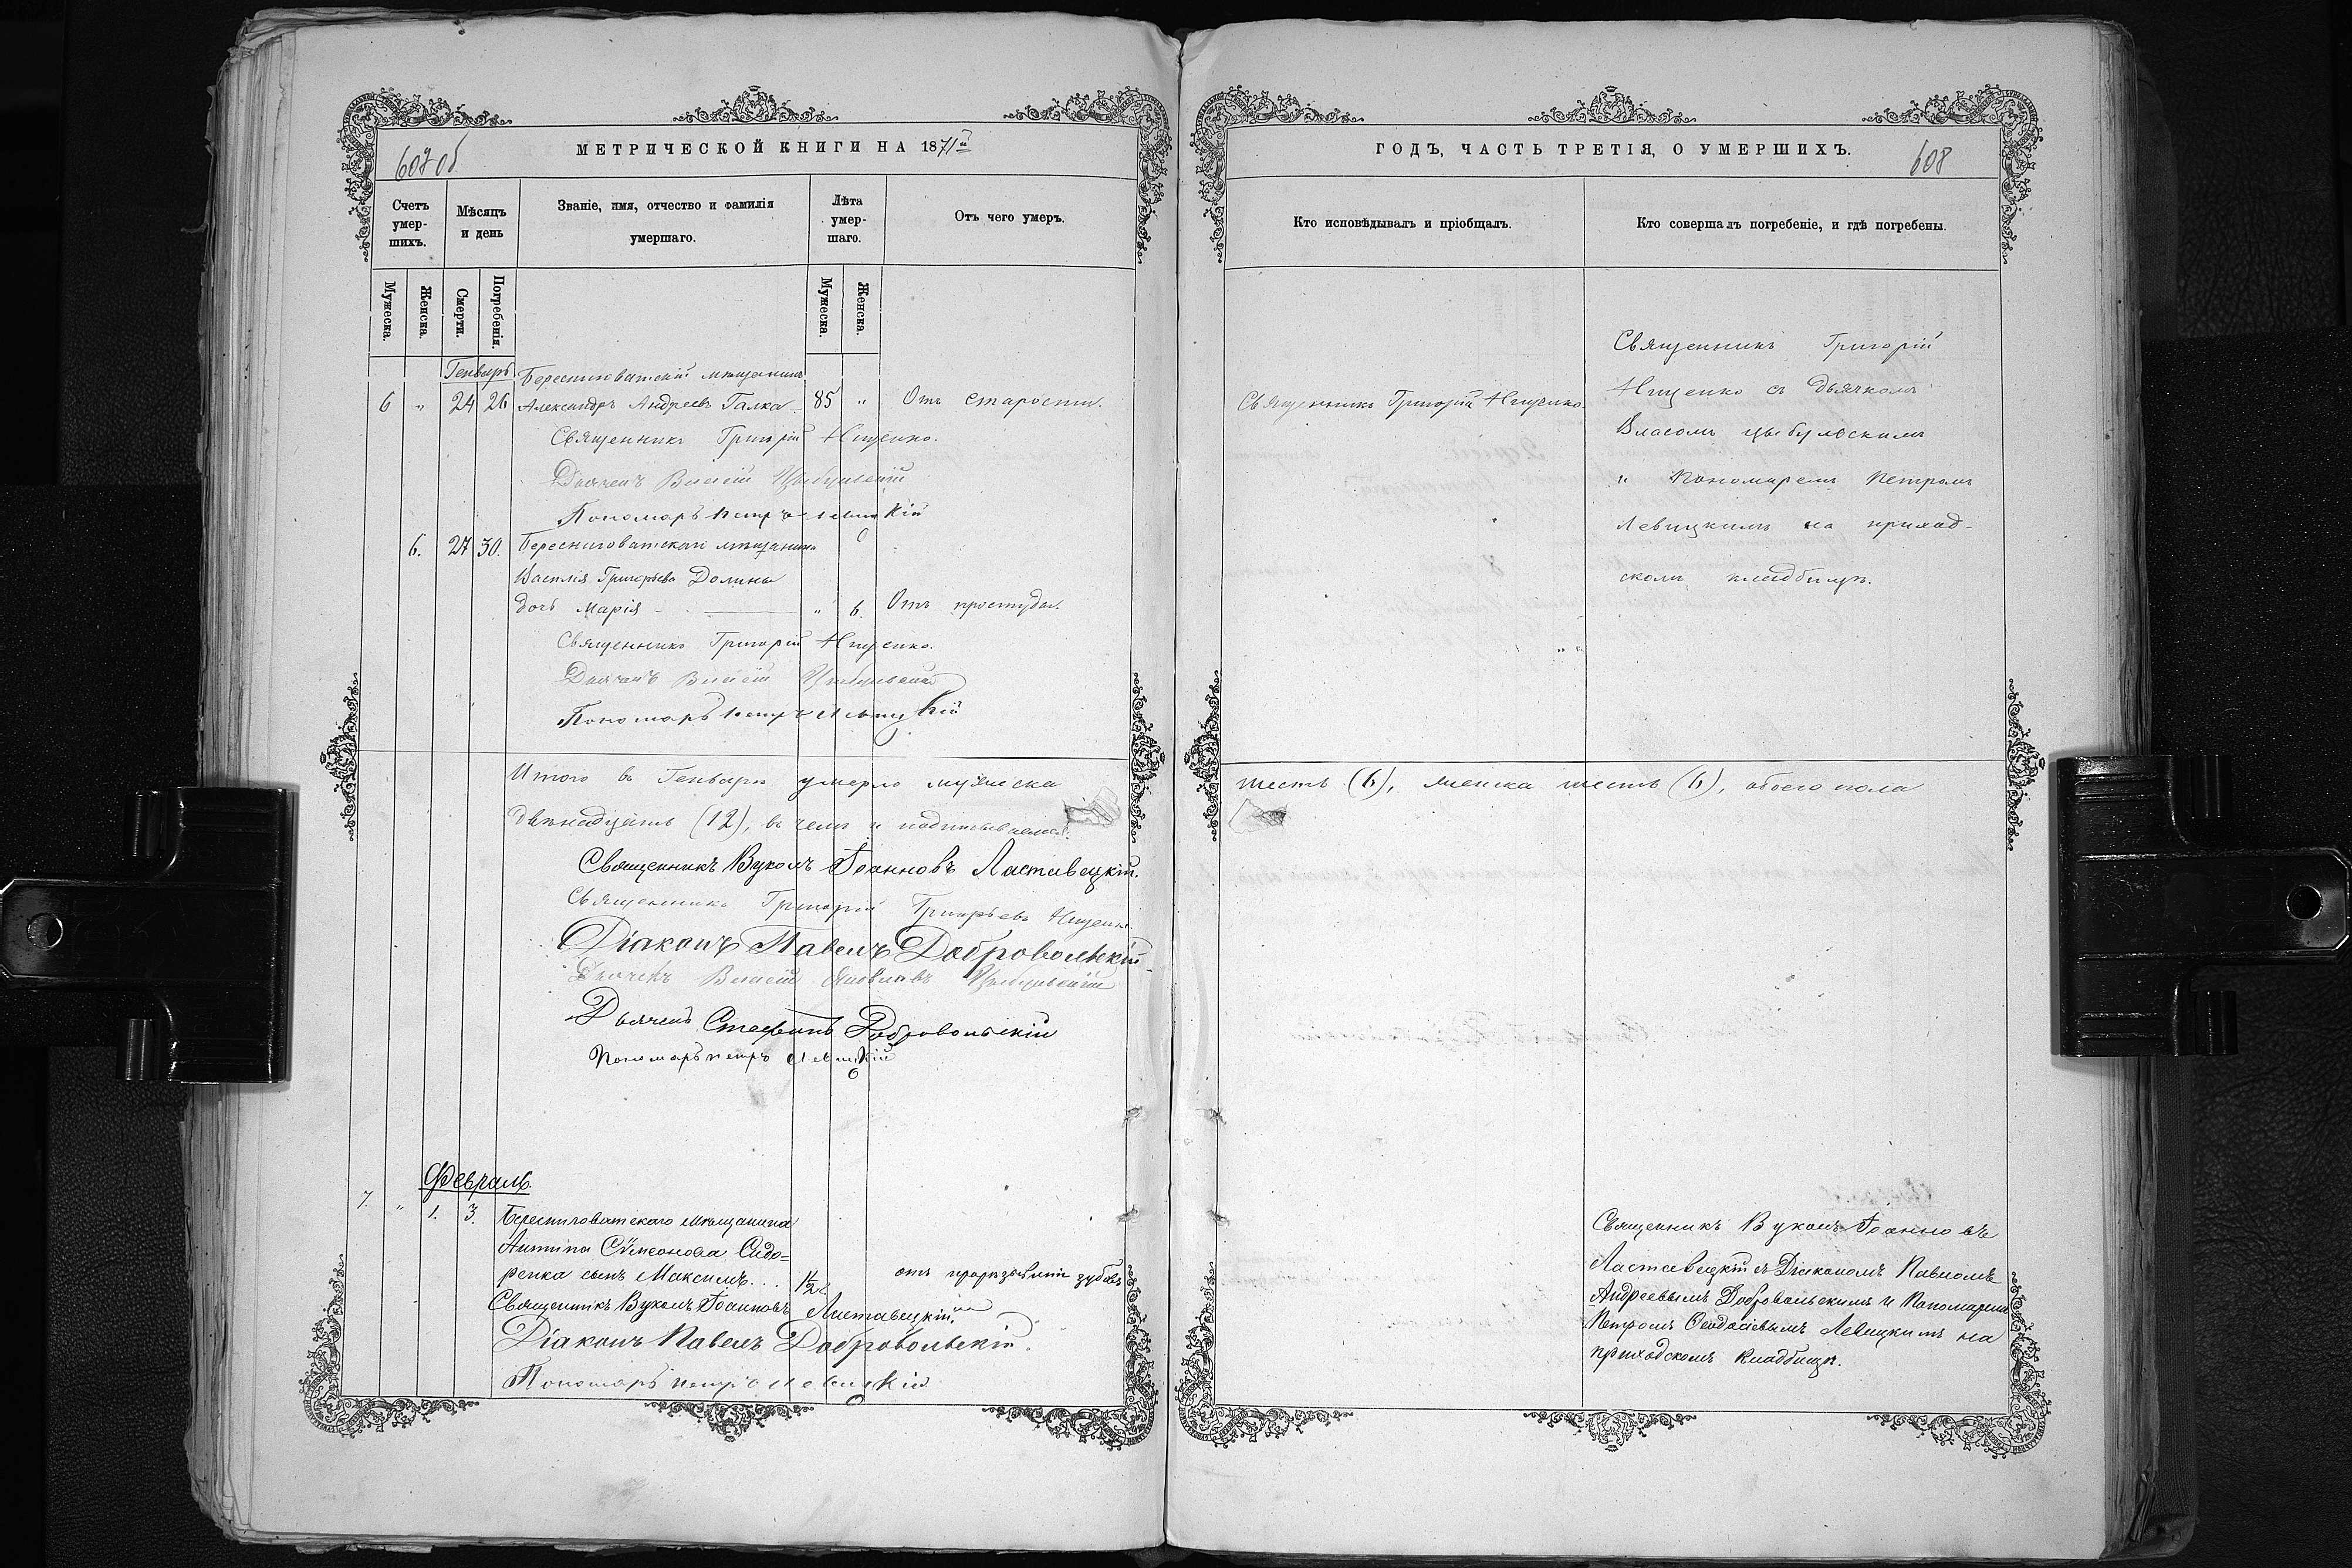 МЕТРИЧЕСКОЙ КНИГИ НА 1871й
607 об
Счетъ умершихъ.
Мѣсяцъ и день
Званіе, имя, отчество и фамилія умершаго.
Лѣта умершаго.
Отъ чего умеръ.
Мужеска.
Женска.
Смерти.
Погребенія.
Мужеска.
Женска.
Генварь
Береснеговатскій мѣщанинъ
6 " 24 26 Александръ Андреевъ Галка 85 " Отъ старости.
Священникъ Григорій Нищенко.
Дьячекъ Власій Цыбульскій
Пономарь Петръ Левицкій
6. 27 30. Береснеговатскаго мѣщанина
Василія Григорьева Долины
дочь Марія " 6. Отъ простуды.
Священникъ Григорій Нищенко.
Дьячекъ Власій Цыбульскій
Пономарь Петръ Левицкій
Итого въ Генварѣ умерло мужеска
двѣнадцать (12), въ чемъ и подписываемся.
Священникъ Вуколъ Іоанновъ Ластавецкій.
Священникъ Григорій Григорьевъ Нищенко
Діаконъ Павелъ Добровольскій
Дьячекъ Власій Цыбульскій
Дьячекъ Стефанъ Добровольскій
Пономарь Петръ Левицкій
Февраль.
7. " 1. 3. Береснеговатскаго мѣщанина
Антипа Сѵмеонова Сидо=
ренка сынъ Максимъ... 1½ отъ прорѣзыванія зубовъ
Священникъ Вуколъ Іоанновъ Ластавецкій.
Діаконъ Павелъ Добровольскій.
Пономарь Петръ Левицкій
ГОДЪ, ЧАСТЬ ТРЕТІЯ, О УМЕРШИХЪ.
608
Кто исповѣдывалъ и пріобщалъ.
Кто совершалъ погребеніе, и гдѣ погребены.
Священникъ Григорій Нищенко.
Священникъ Григорій
Нищенко съ дьячкомъ
Власомъ Цыбульскимъ
и Пономаремъ Петромъ
Левицкимъ на приход-
скомъ кладбищѣ.
шесть (6), женска шесть (6), обоего пола
Священникъ Вуколъ Іоанновъ
Ластавецкій съ Діакономъ Павломъ
Андреевымъ Добровольскимъ и Пономаремъ
Петромъ Ѳеодосіевымъ Левицкимъ на
приходскомъ кладбищѣ.